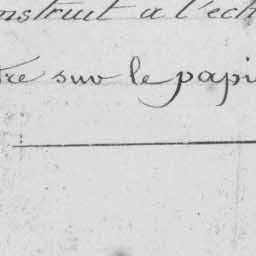 nstruit a l'ech
tre sur le papi